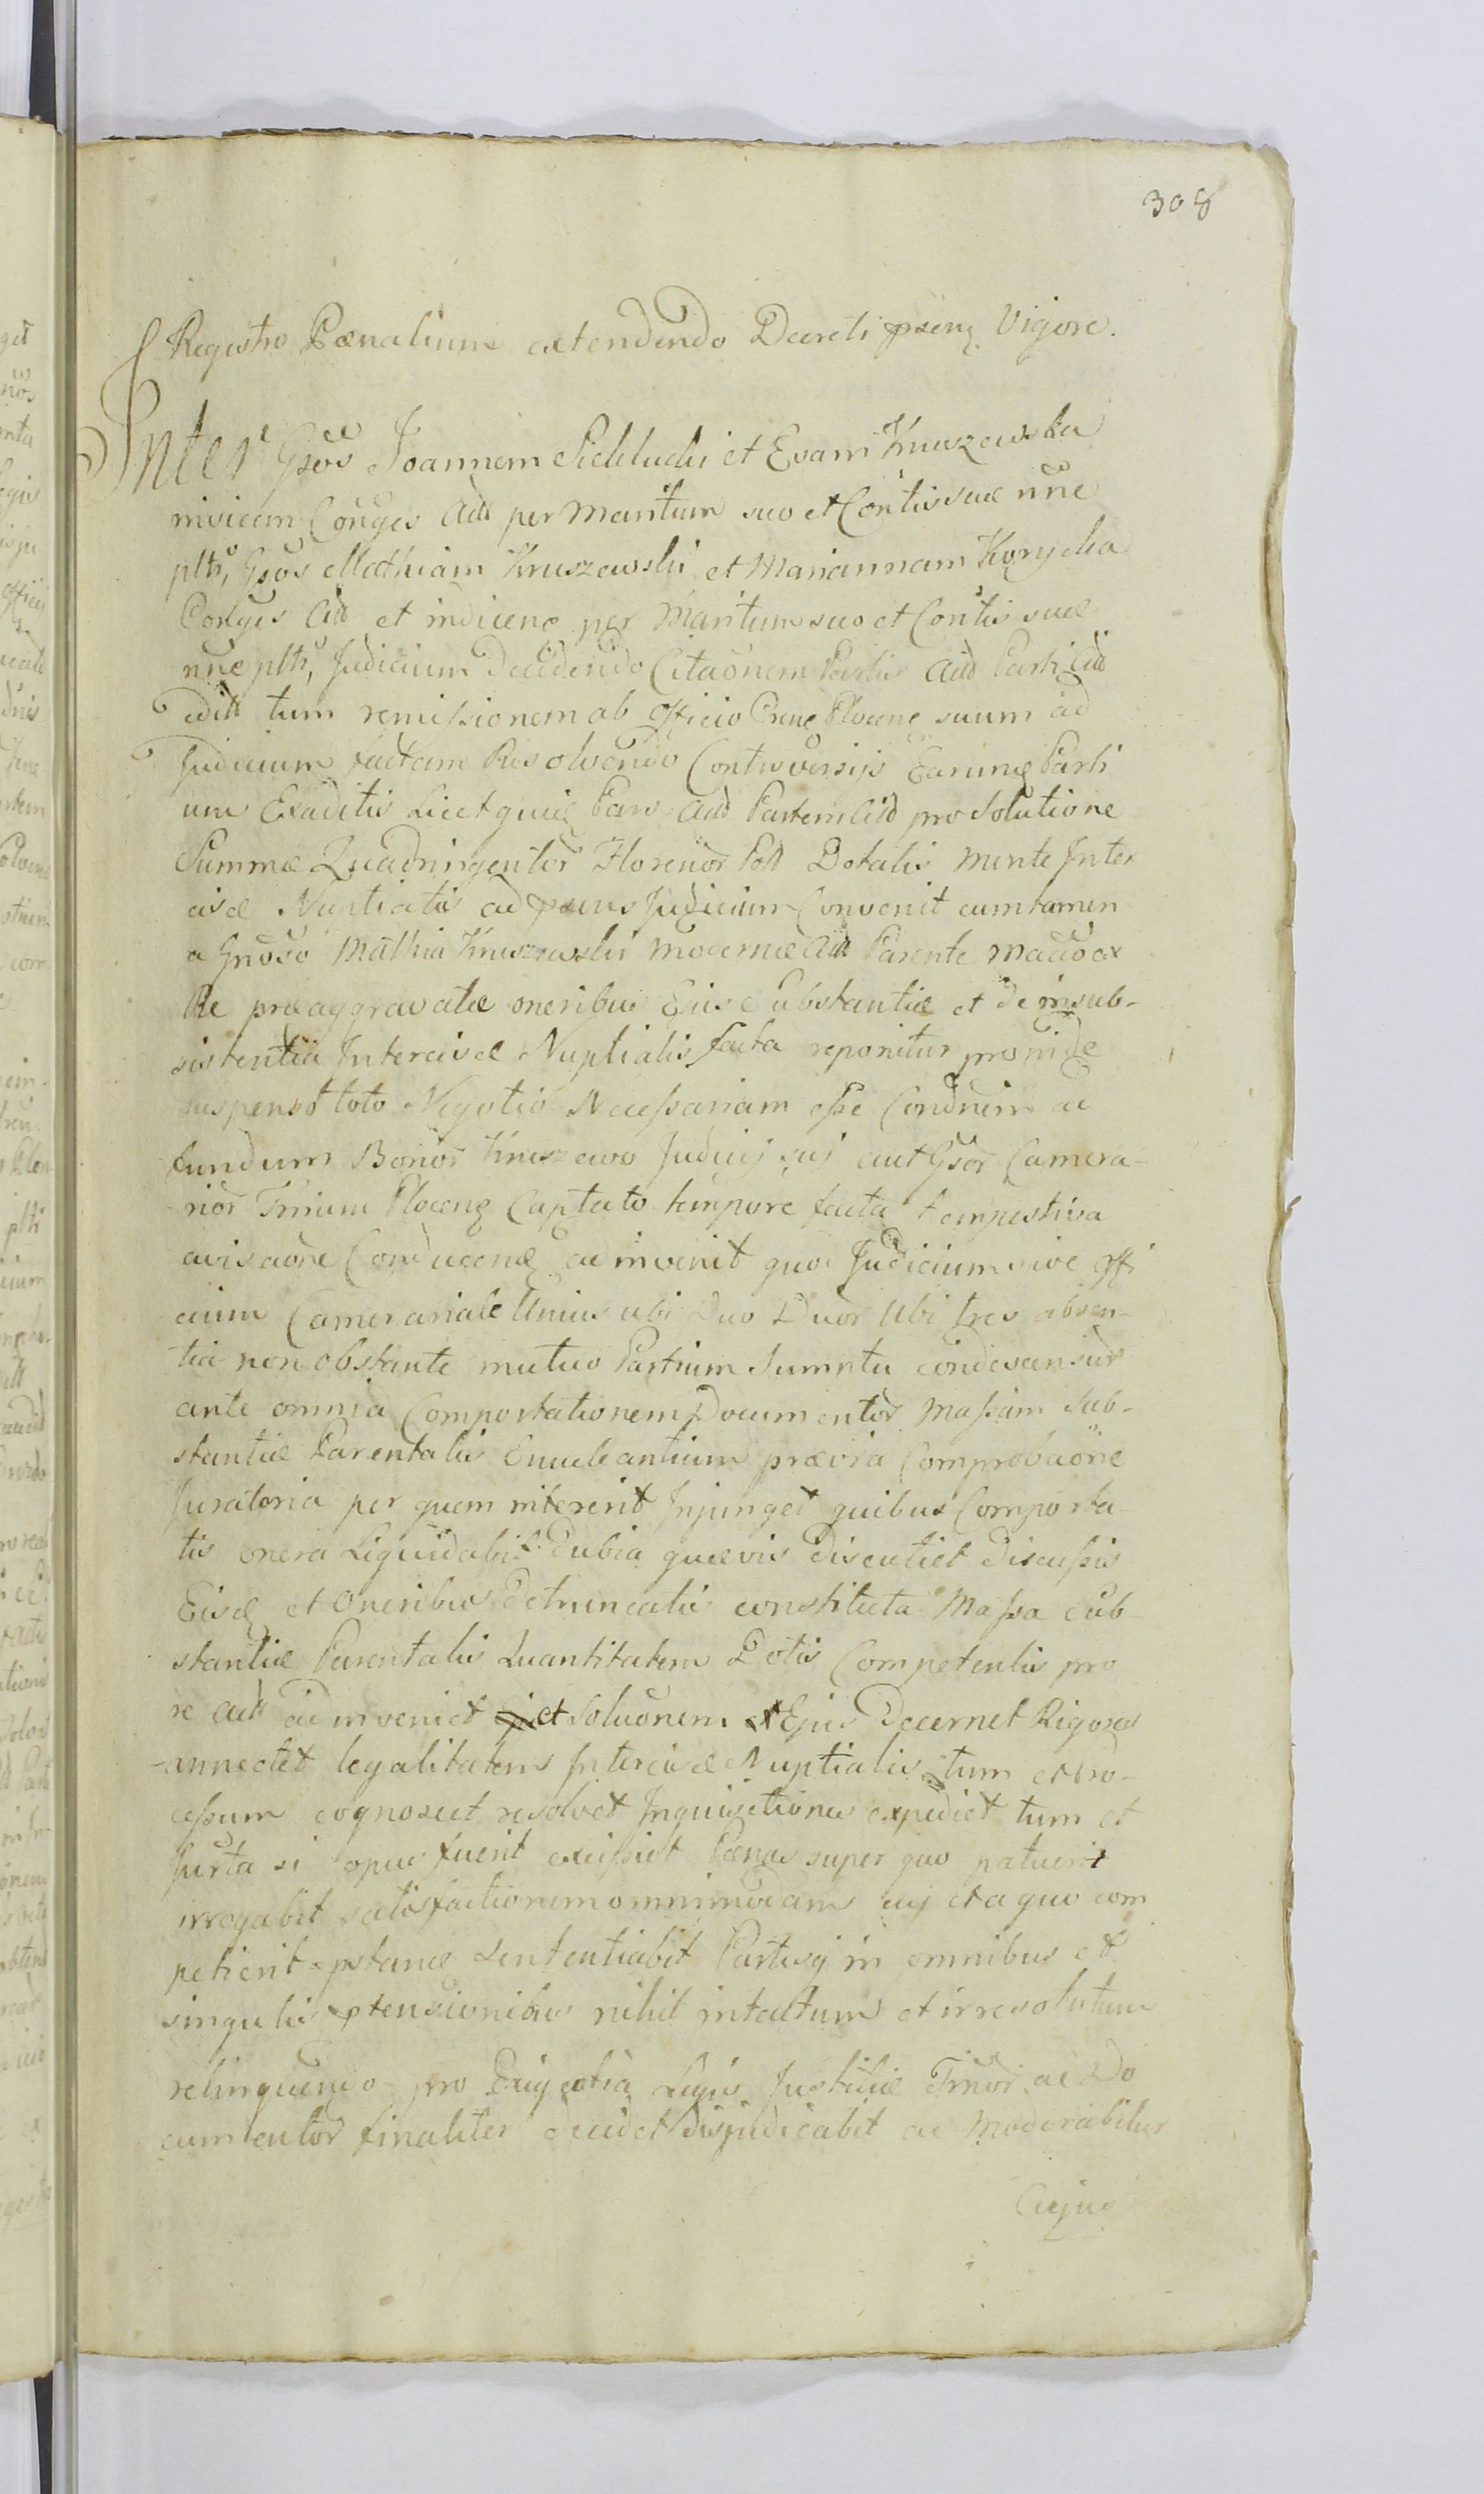 308
Registro Pœnalium extendendo Decreti præsen. Vigore.
Inter Gsos Joannem Siekłucki et Evam Kruszewska
invicem Conges Act per Maritum suo et Contis suæ nne
plts, Gsos Mathiam Kruszewski et Mariannam Korycka
Conges Cit et indicenc per Maritum suo et Contis suæ
nne plts, Judicium Decidendo Citaonem Partis Act Parti Cit
edit tum remissionem ab Officio Crens Plocens suum ad
Judicium factam Resolvendo Controversijs Earund Parti
um Exauditis Licet quid Pars Act Partem Cit pro Solutione
Summæ Quadringentor Florenor Poll Dotalis Mente Inter
cisæ Nuptialis ad præsens Judicium Convenit cum tamen
a Gnoso Mathia Kruszewski modernæ Act Parente
Re præaggravatæ oneribus Ejus Substantiæ et de insub-
sistentia Intercisæ Nuptialis facta reponitur proinde
suspenso toto Negotio Necessariam esse Condnem ad
fundum Bonor Kruszewo Judicij sui aut Gsor Camera-
rior Trium Plocens Captato tempore facta tempestiva
avisaone Conducend adinvenit quod Judicium sive Offi
cium Camerariale Unius ubi Duo Duor Ubi tres absen-
tia non obstante mutuo Partium Sumptu condescensur
ante omnia Comportationem Documentor Massam Sub-
stantiæ Parentalis Enucleantium prævia Comprobaone
Juratoria per quem intererit Injunget quibus Comporta
tis onera Liquidabit Dubia quævis discutiet discussis
Eisd et Oneribus Detruncatis constituta Massa Sub-
stantiæ Parentalis Quantitatem Dotis Competentis pro
re Act adinveniet et Soluonem Ejus Decernet Rigores
annectet legalitatem Intercisæ Nuptialis tum et pro-
cessum cognoscet resolvet Inquisitiones expediet tum et
Jurta si opus fuerit excipiet Pœnas super quo patuerit
irrogabit satisfactionem omnimodam cuj et a quo com
petierit pstand Sententiabit Partesq in omnibus et
singulis ptensionibus nihil intactum et irresolutum
relinquendo pro Exigentia Legis Justitiæ Trnor ac Do
cumentor finaliter decidet Disjudicabit ac Moderabitur
Cujus